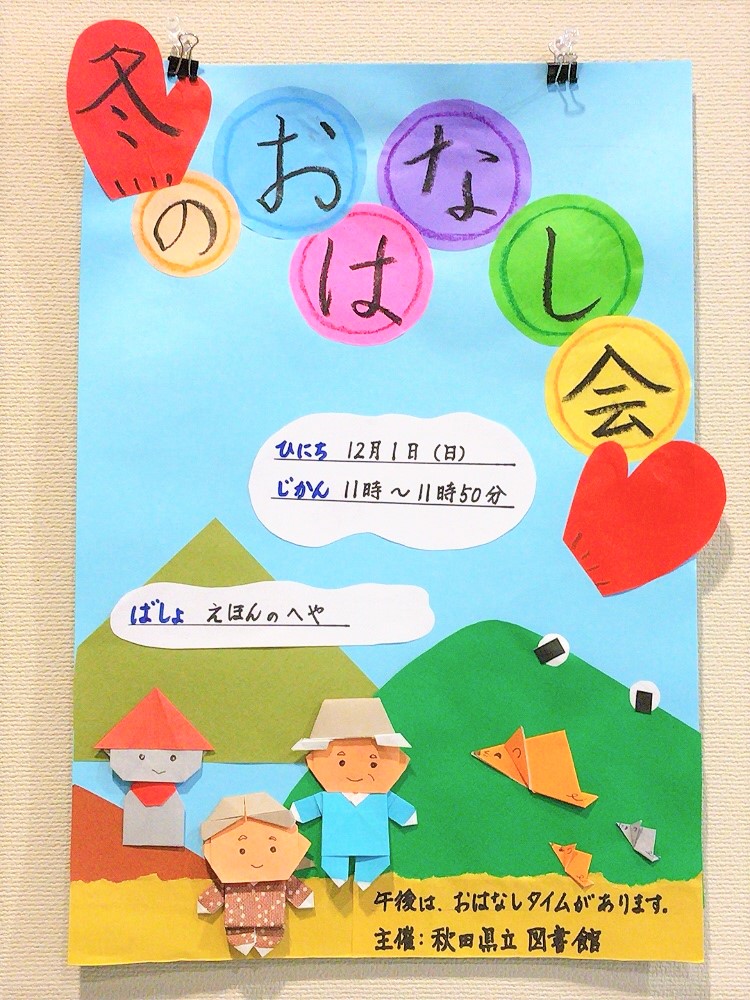 冬のおはなし会
ひにち 12月1日（日）
じかん 11時～11時50分
ばしょ えほんのへや
午後は、おはなしタイムがあります。
主催：秋田県立図書館